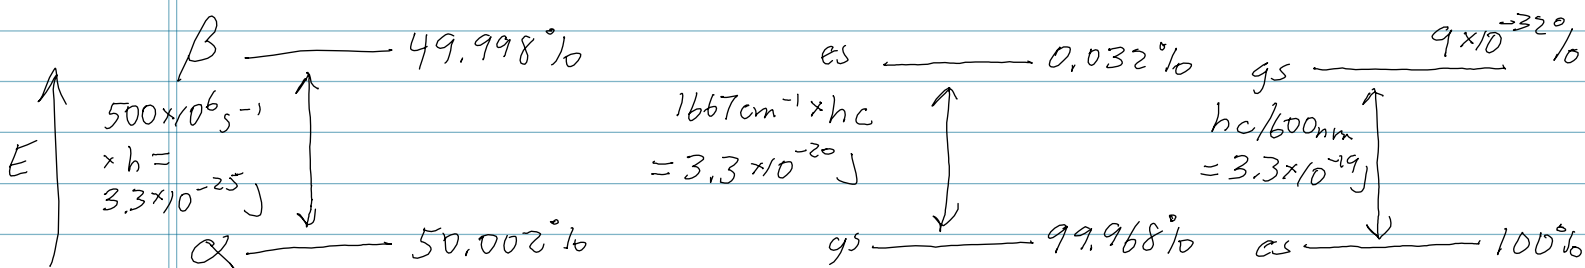 β 49.998%
500×10⁶s⁻¹
×h=
3.3×10⁻²⁵J
E
α 50.002%
es 0.032%
1667cm⁻¹×hc
=3.3×10⁻²⁰J
gs 99.968%
gs 9×10⁻³²%
hc/600nm
=3.3×10⁻¹⁹J
es 100%